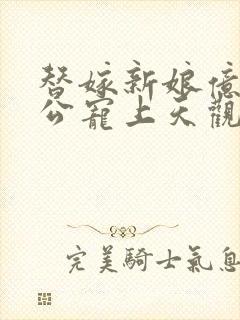 替嫁新娘億
公寵上天觀
完美騎士氣息